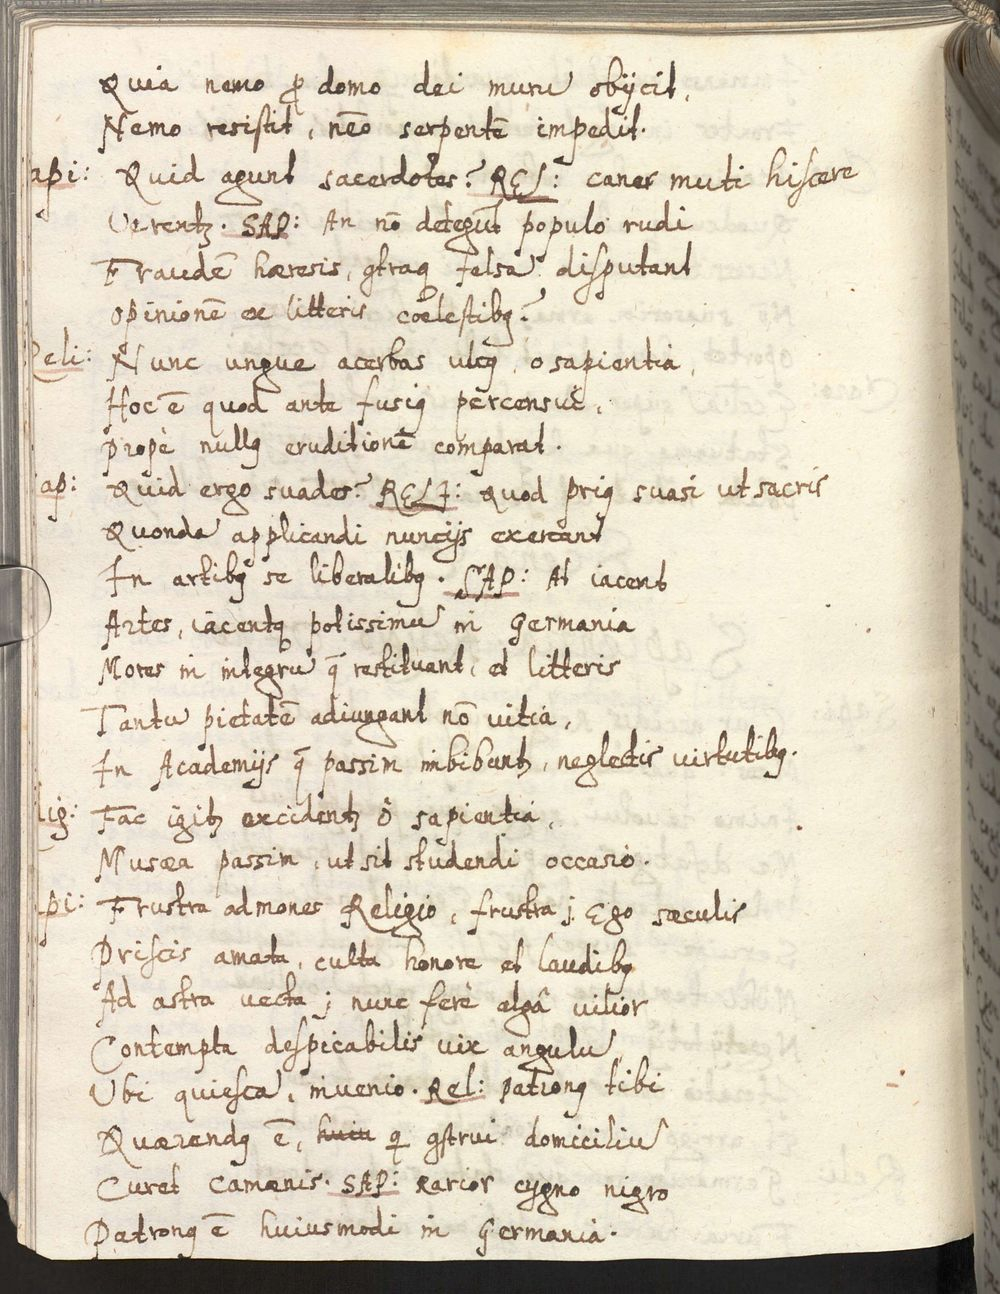 Quia nemo ꝓ domo dei murū obijcit,
Nemo resistit, nēo serpentē impedit.
api: Quid agunt sacerdotes? REL: canes muti hiscere
Verentꝛ. SAP: An nō detegūt populo rudi
Fraudē hæresis, ꝯtraq̃ falsa disputant
opinionē ex litteris cœlestibꝰ?
Reli: Nunc ungue acerbas ulcꝰ, o sapientia,
Hoc ē quod ante fusiꝰ percensui,
Propè nullꝰ eruditionē comparat.
ap: Quid ergo suades? RELI: Quod priꝰ suasi ut sacris
Quondā applicandi nuncijs exerceant
In artibꝰ se liberalibꝰ. SAP: At iacent
Artes, iacentq̃ potissimū in Germania
Mores in integrū q̄ restituant, et litteris
Tantū pietatē adiungant nō vitia,
In Academijs q̄ passim imbibuntꝛ, neglectis virtutibꝰ.
lig: Fac igitꝛ excidentꝛ ô sapientia,
Musæa passim, ut sit studendi occasio.
pi: Frustra admones Religio, frustra; Ego sæculis
Priscis amata, culta honore et laudibꝰ
Ad astra vecta; nunc ferè algâ vilior
Contempta despicabilis vix angulū
Ubi quiescā, invenio. Rel: patronꝰ tibi
Quærendꝰ ē, huiu qi ꝯstrui domiciliū
Curet camænis. SAP: Rarior cygno nigro
Patronꝰ ē huiusmodi in Germania.